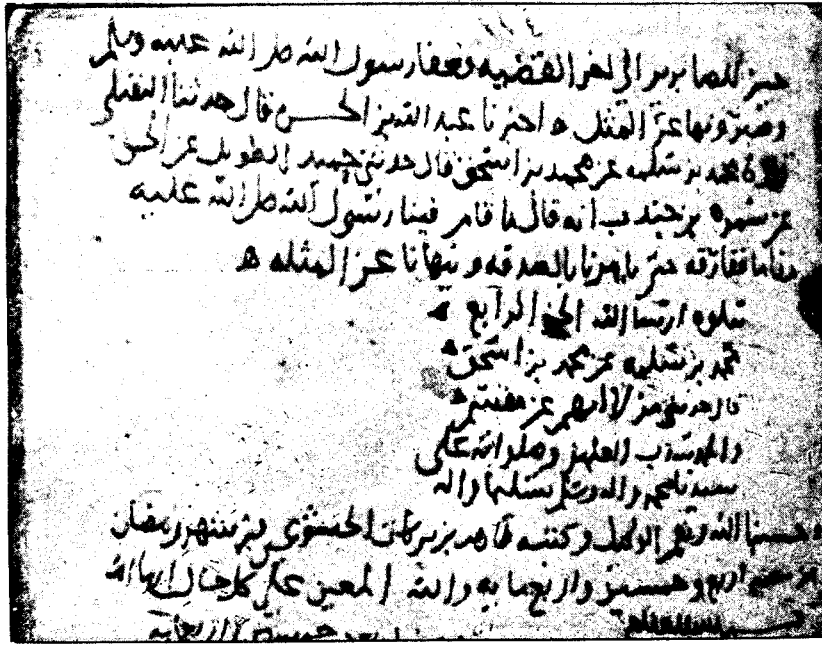 الى اخر القضيه رسول الله صلى الله عليه وسلم
عن المثل ه اخبرنا عبد الله بن الحسن قال حدثنا النفيلي
محمد بن سلمه عن محمد بن اسحق قال حدثني حميد الطويل عن الحسن
عن سمره بن جندب انه قال ما قام فينا رسول الله صلى الله عليه
مقاما ففارقه حتى يامرنا بالصدقه وينهانا عن المثله ه
يتلوه ان شا الله الجز الرابع
محمد بن سلمه عن محمد بن اسحق
قال حدثني من لا اتهم عن مقسم
والحمد لله رب العلمين وصلواته على
سيدنا محمد واله وسلم تسليما
وحسبنا الله ونعم الوكيل وكتبه طاهر بن بركات الخشوعي في شهر رمضان
اربع وخمسين واربعمايه والله المعين على كل حال